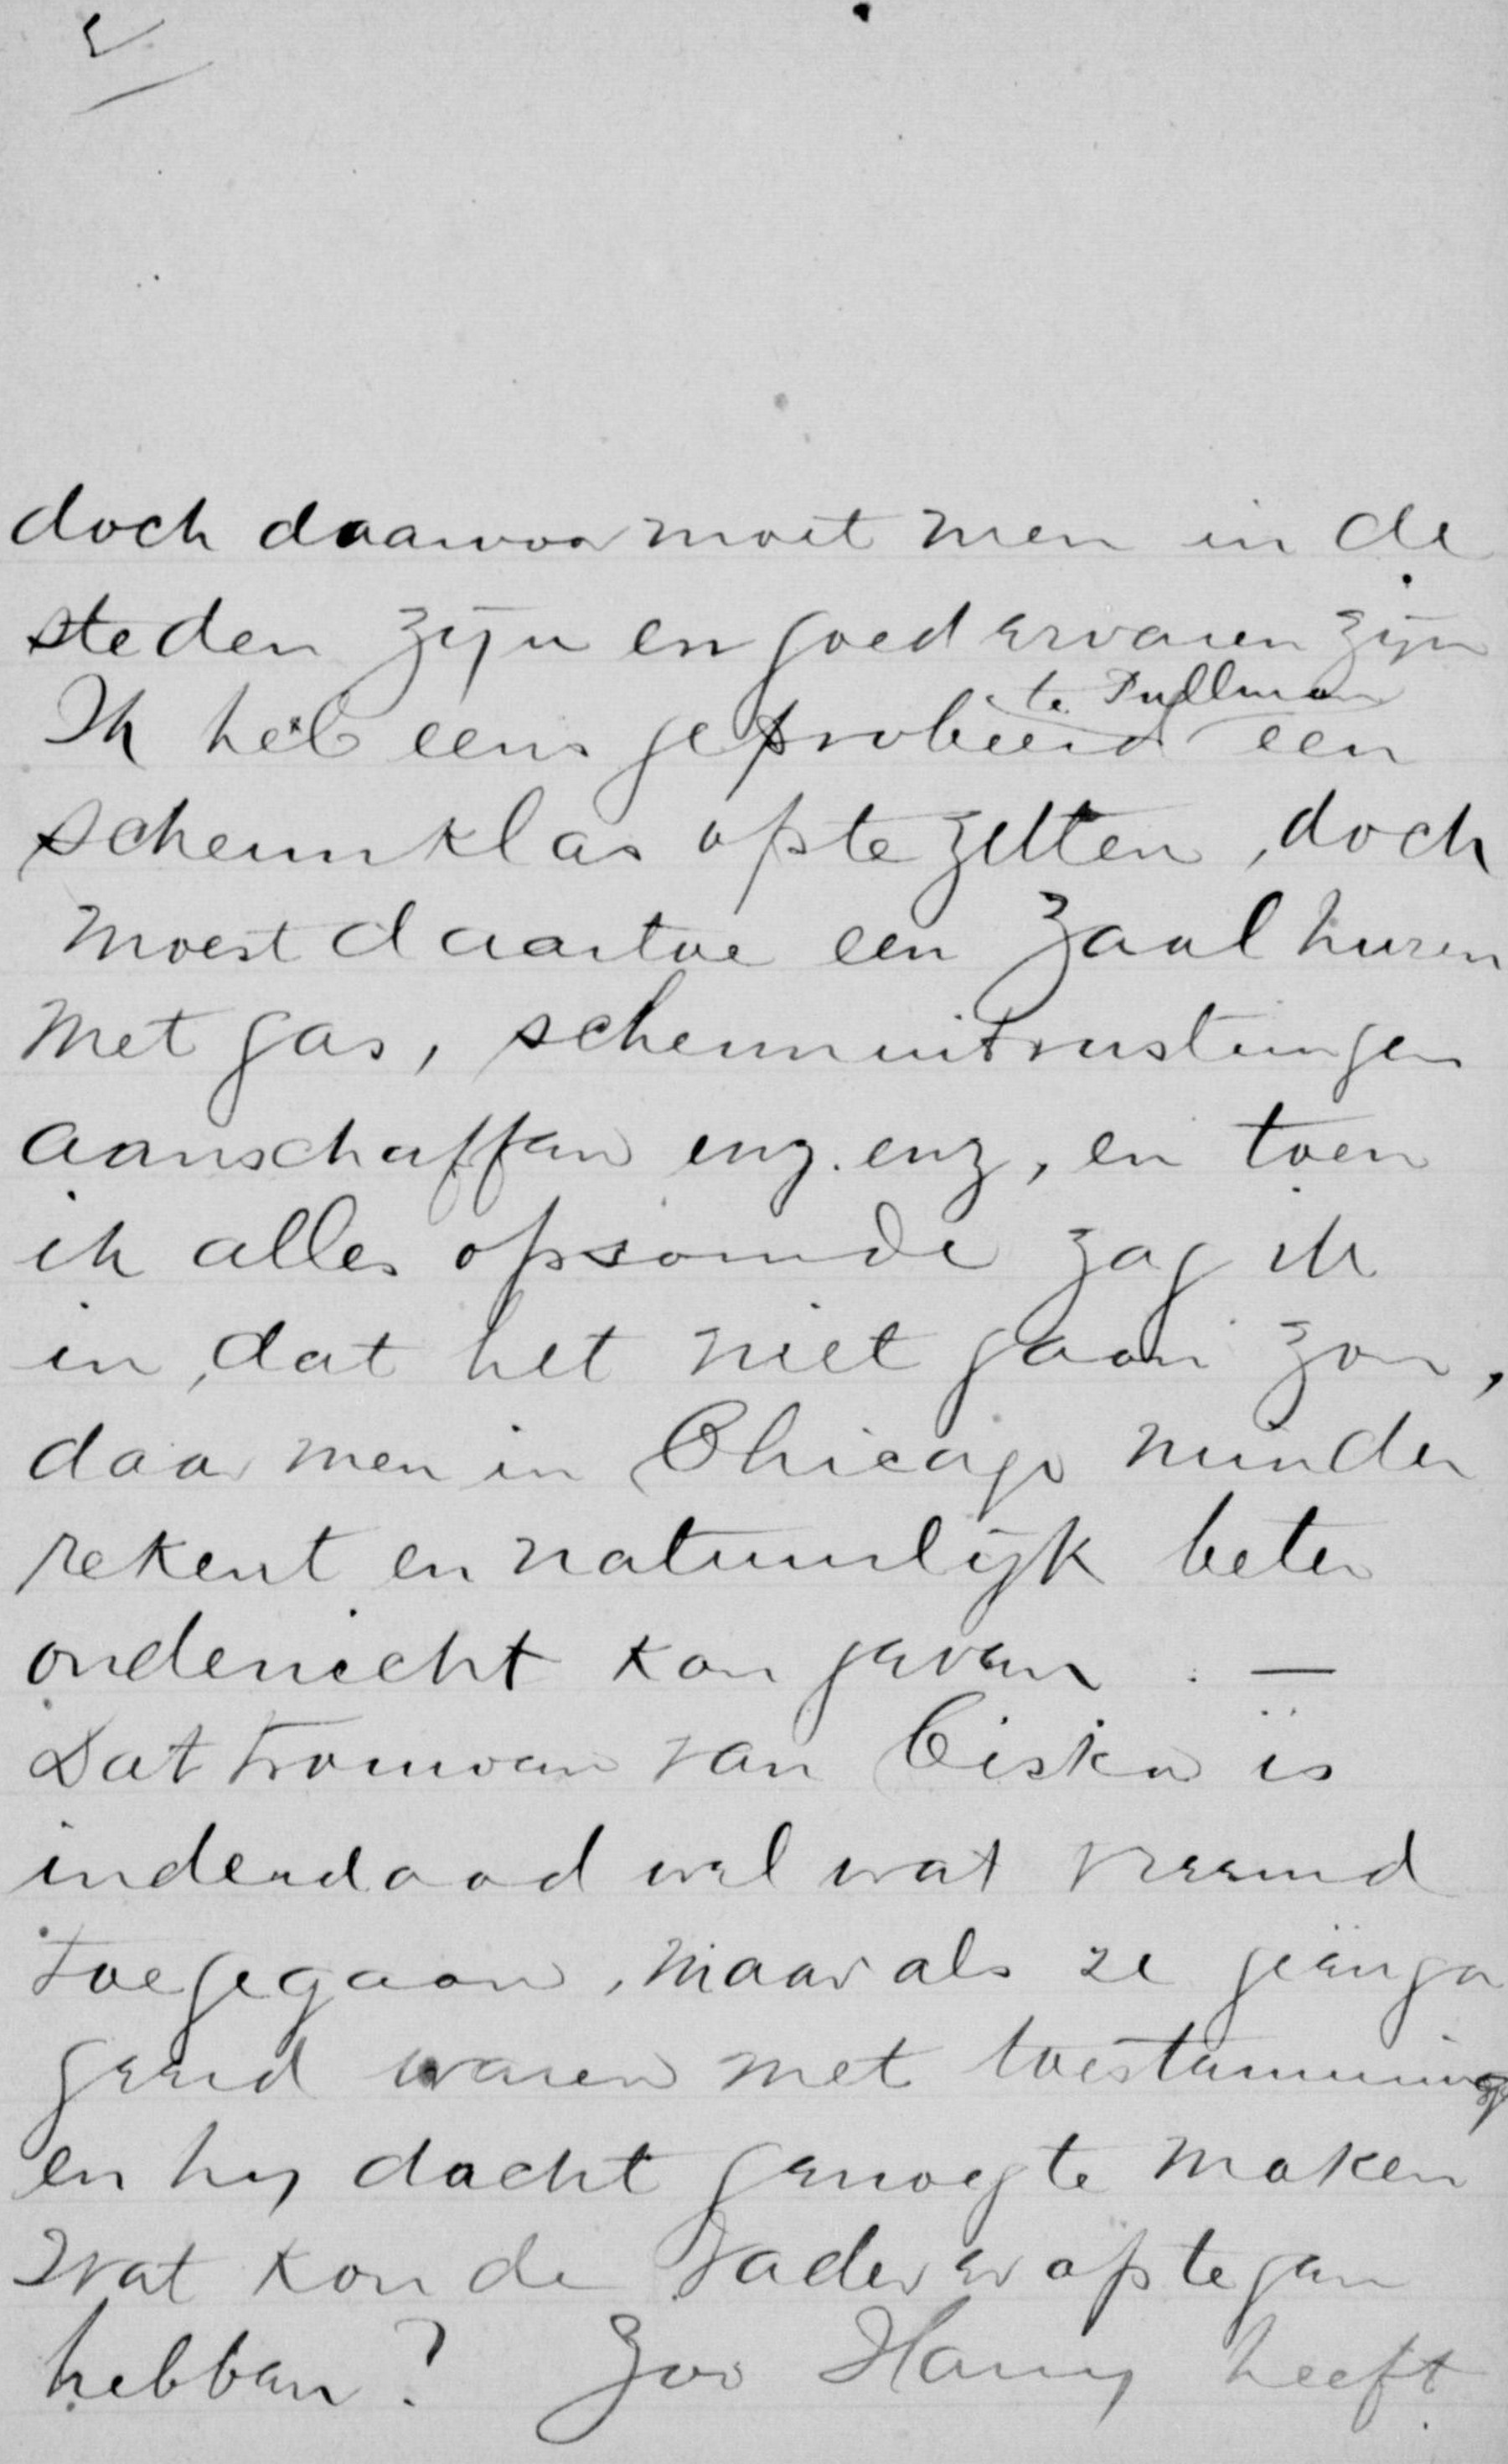 doch daarvoor moet men in de
steden zijn en goed ervaren zijn
te Pullman
Ik heb eens geprobeerd een
schermklas op te zetten, doch
moest daartoe een zaal huren
met gas, schermuitrustingen
aanschaffen enz. enz, en toen
ik alles opsomde zag ik
in, dat het niet gaan zou,
daar men in Chicago minder
rekent en natuurlijk beter
onderricht kan geven. —
Dat trouwen van Ciska is
inderdaad wel wat vreemd
toegegaan, maar als ze geënga
geerd waren met toestemming
en hij dacht genoeg te maken
wat kon de vader er op tegen
hebben? Zoo Harry heeft